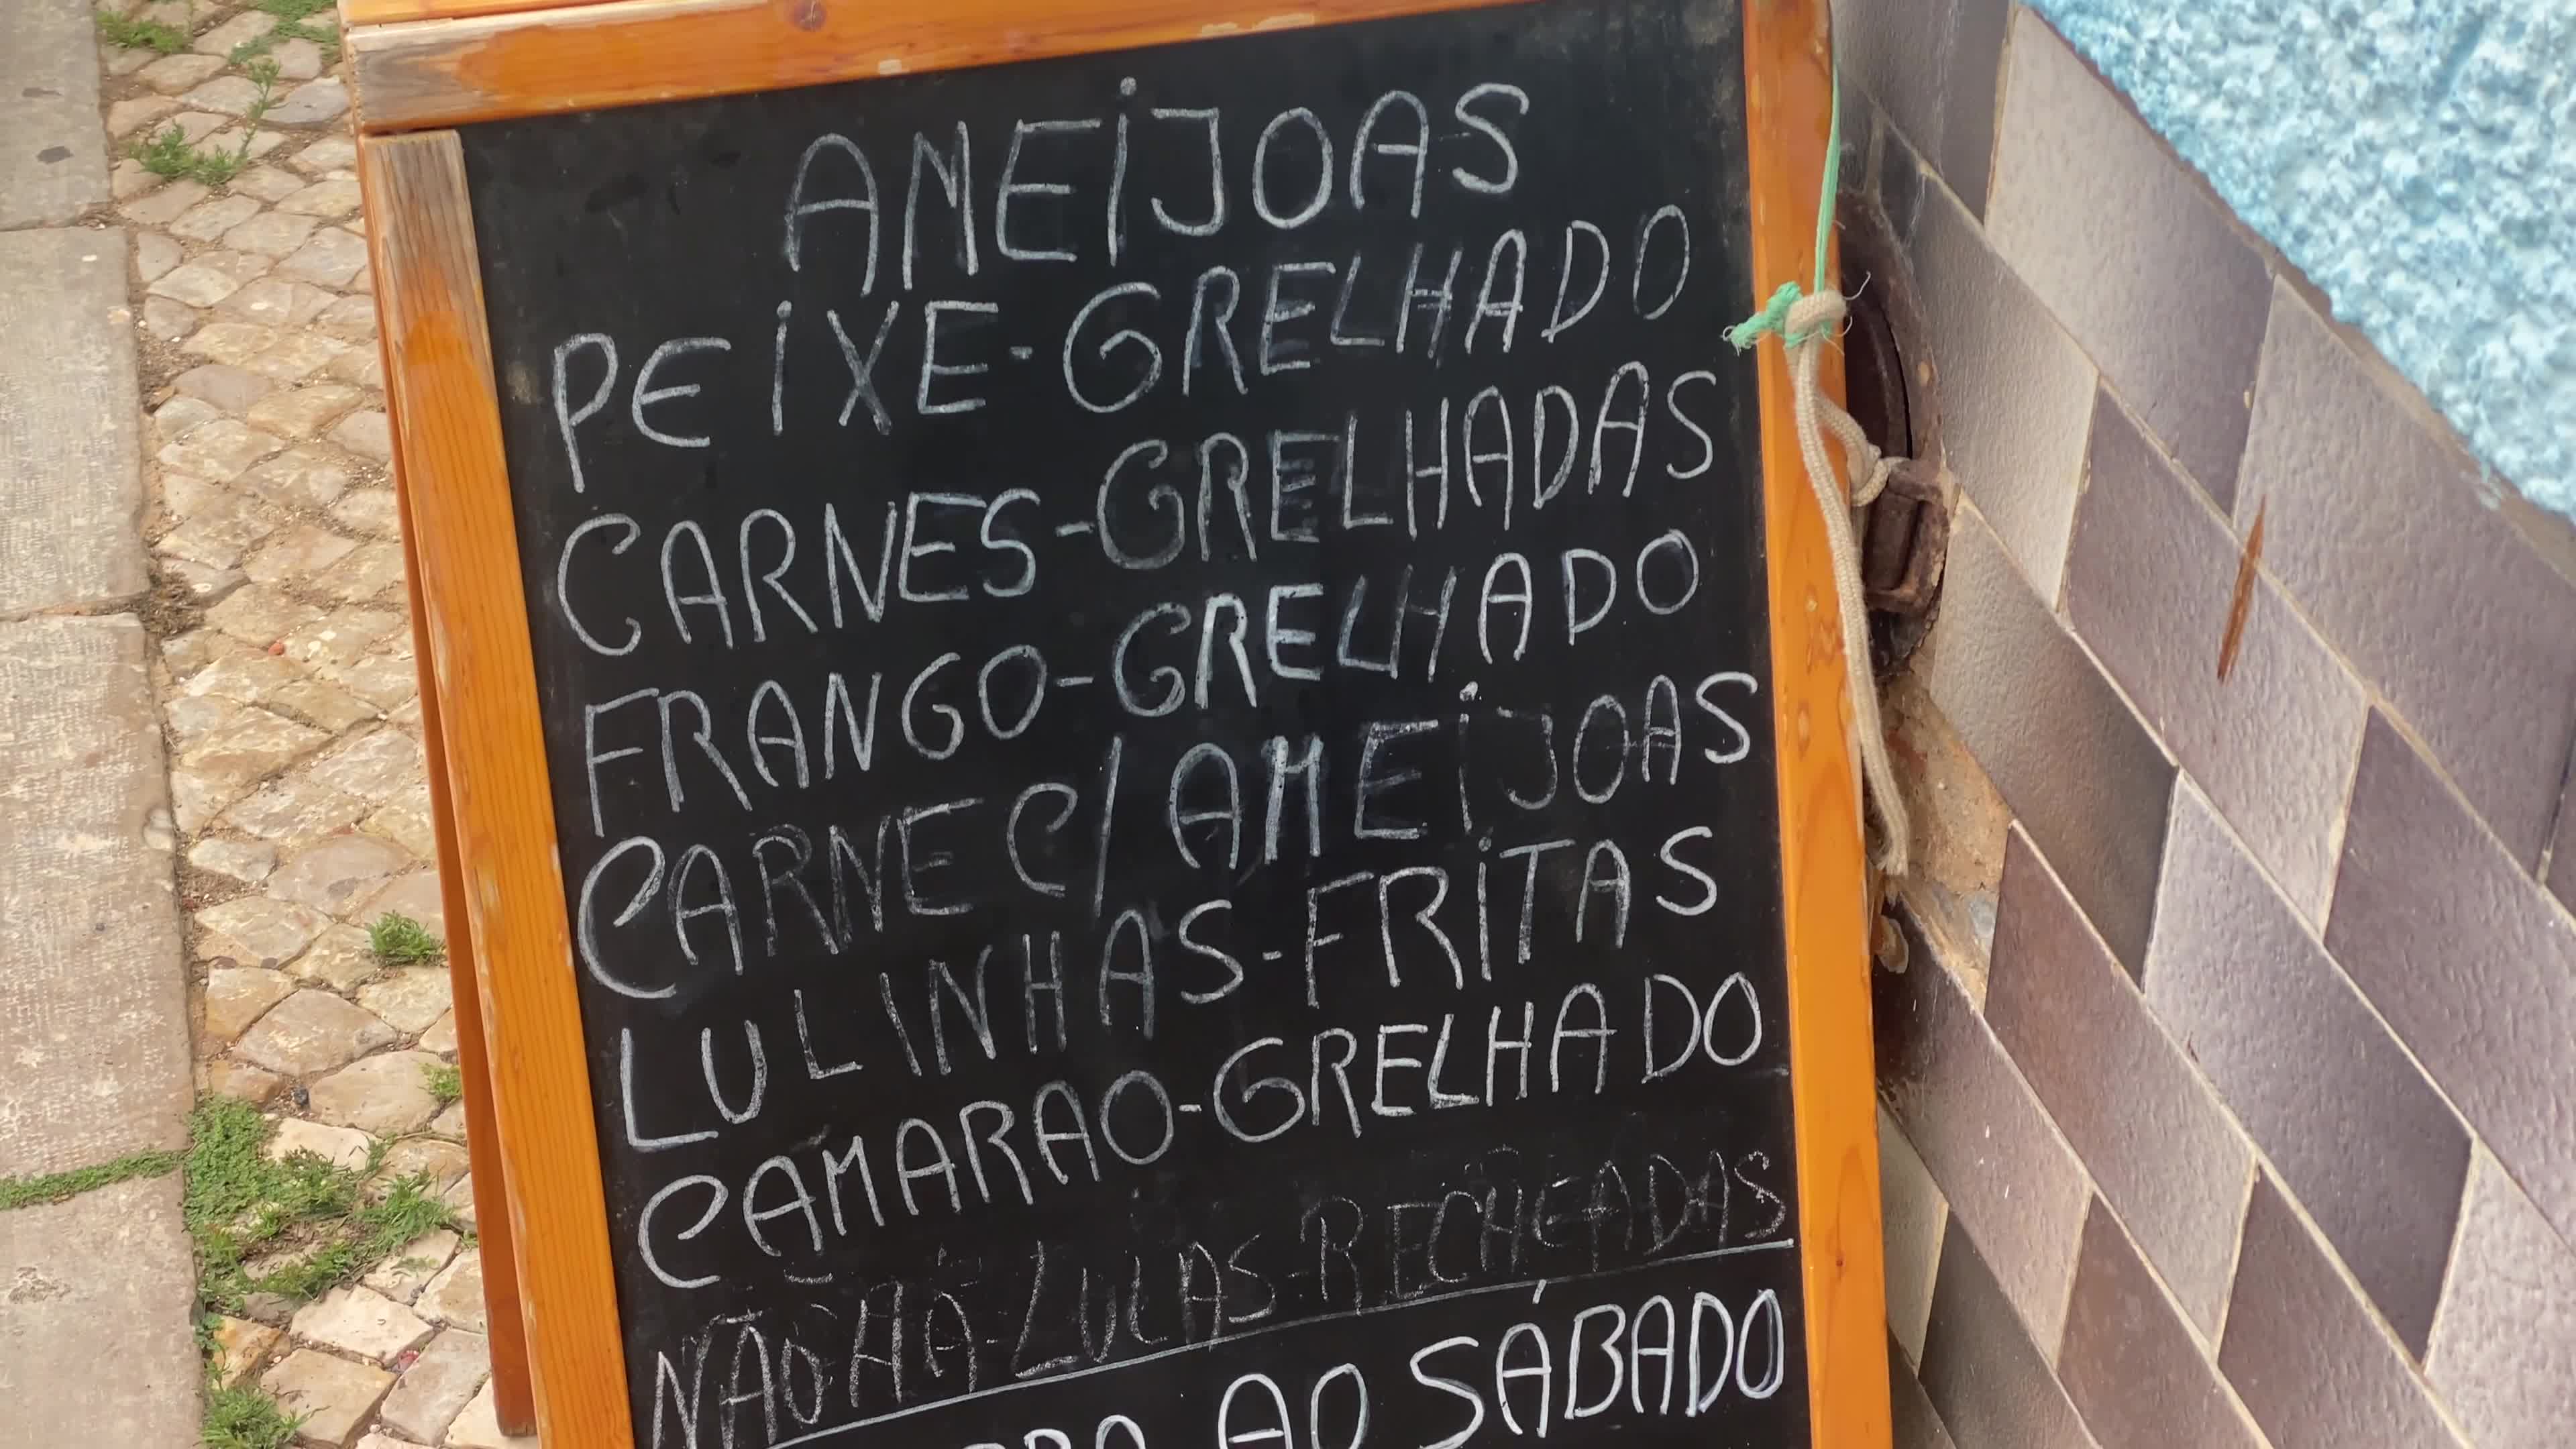 AMEIJOAS
PEIXE-GRELHADO
CARNES-GRELHADAS
FRANGO-GRELHADO
CARNE C/AMEIJOAS
LULINHAS-FRITAS
CAMARAO-GRELHADO
NÃO HÁ LULAS-RECHEADAS
AO SÁBADO